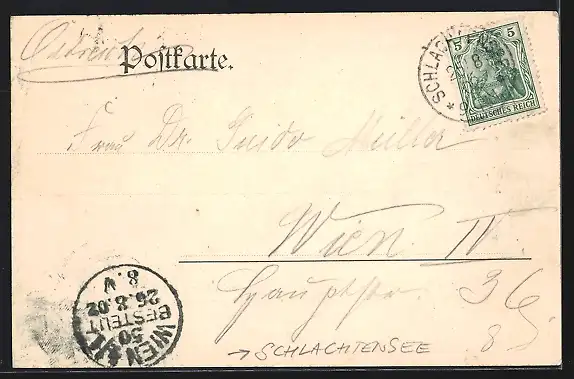 Oesterreich
Postkarte.
SCHLACHTENSEE
5 5
DEUTSCHES REICH
Frau Dr. Guido Müller
Wien IV.
Hauptstr. 36
8
WIEN
50
BESTELLT
26.8.02
8.V
→ SCHLACHTENSEE